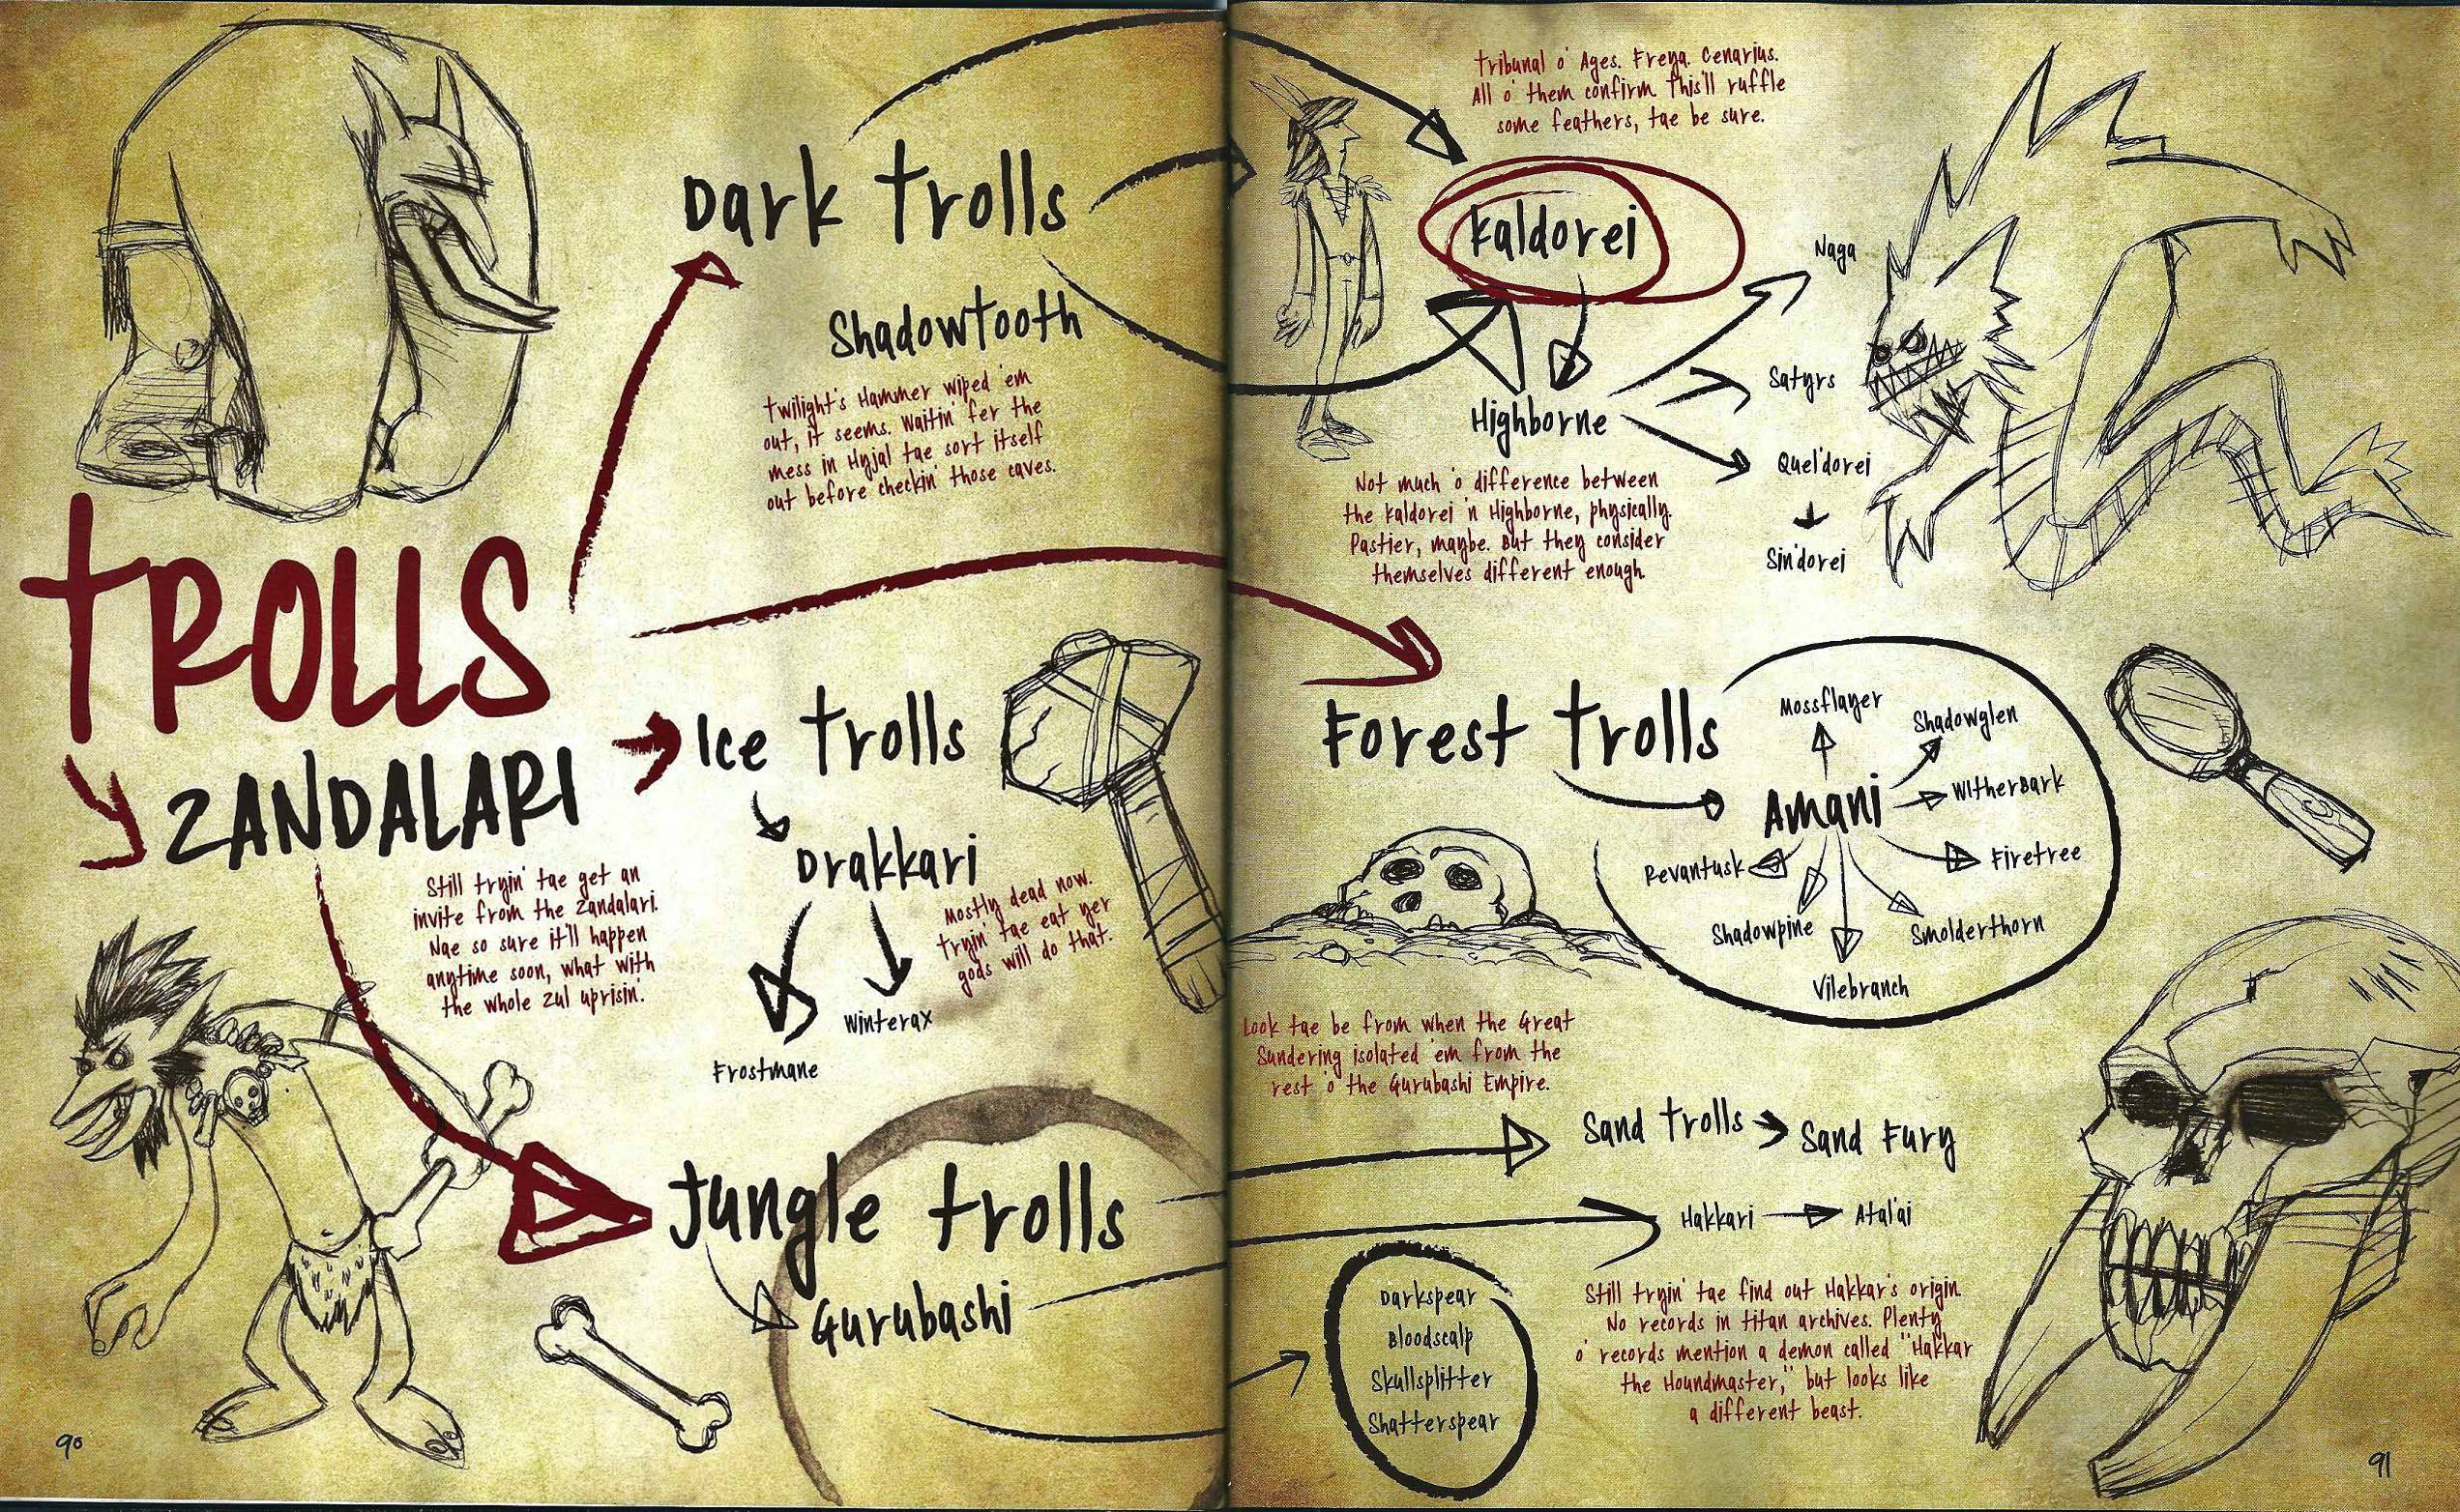 Dark Trolls
Shadowtooth
Twilight's Hammer wiped 'em
out, it seems. Waitin' fer the
mess in Hyjal tae sort itself
out before checkin' those caves.
TROLLS
ZANDALARI
Still tryin' tae get an
invite from the Zandalari.
Nae so sure it'll happen
anytime soon, what with
the whole Zul uprisin'.
Ice Trolls
Drakkari
Mostly dead now.
Tryin' tae eat yer
gods will do that.
Frostmane
Winterax
Jungle Trolls
Gurubashi
90
Tribunal o' Ages. Freya. Cenarius.
All o' them confirm this'll ruffle
some feathers, tae be sure.
Kaldorei
Highborne
Not much o' difference between
the Kaldorei 'n Highborne, physically.
Pastier, maybe. But they consider
themselves different enough.
Naga
Satyrs
Quel'dorei
Sin'dorei
Forest Trolls
Amani
Mossflayer
Shadowglen
Witherbark
Firetree
Revantusk
Shadowpine
Smolderthorn
Vilebranch
Look tae be from when the Great
Sundering isolated 'em from the
rest 'o' the Gurubashi Empire.
Sand Trolls
Sand Fury
Hakkari
Atal'ai
Darkspear
Bloodscalp
Skullsplitter
Shatterspear
Still tryin' tae find out Hakkar's origin.
No records in titan archives. Plenty
o' records mention a demon called "Hakkar
the Houndmaster," but looks like
a different beast.
91